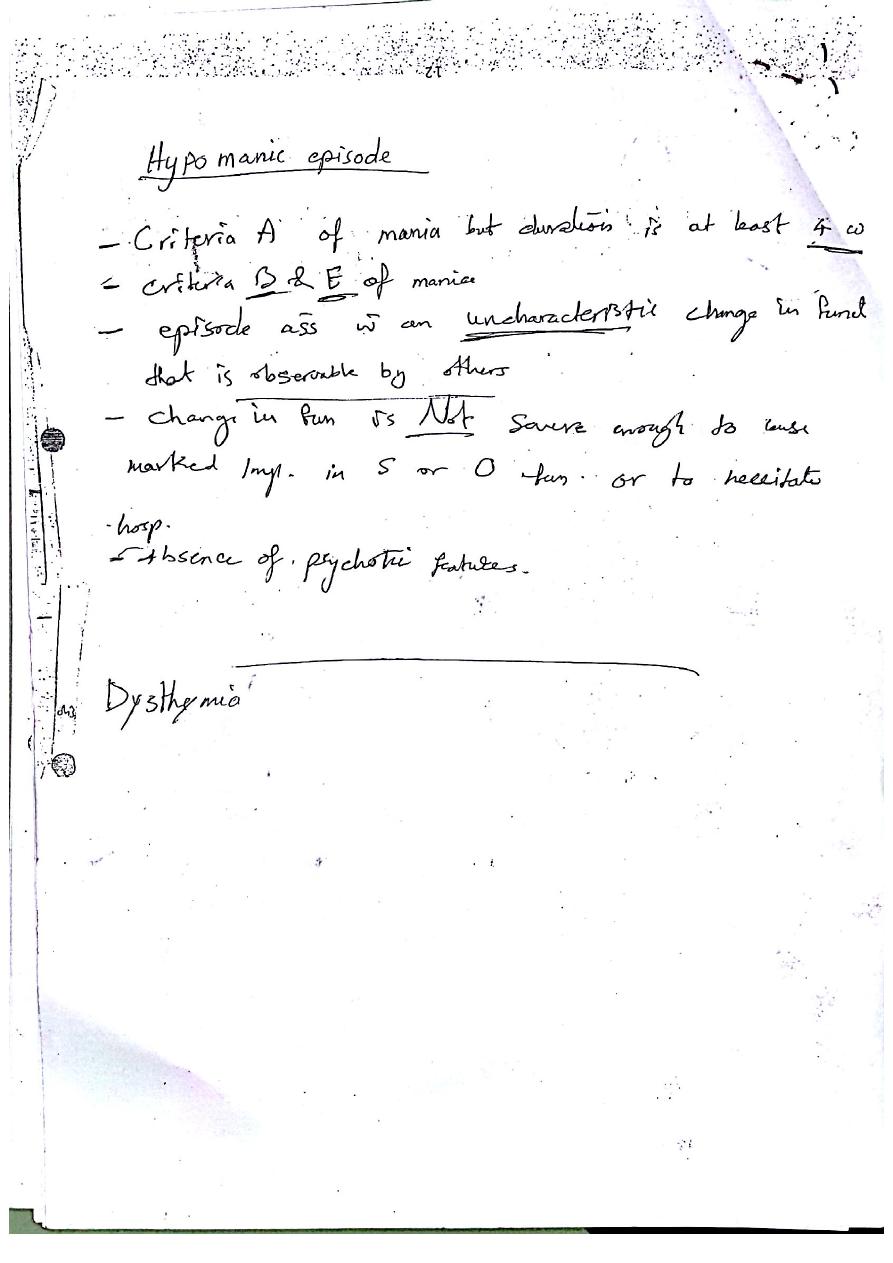 Hypomanic episode
- Criteria A of mania but duration is at least 4 w
- criteria B & E of mania
- episode ass w̄ an uncharacteristic change in funct
that is observable by others
- change in fun is Not severe enough to cause
marked Imp. in S or O fun. or to neccitate
hosp.
- Absence of psychotic features.
Dysthymia